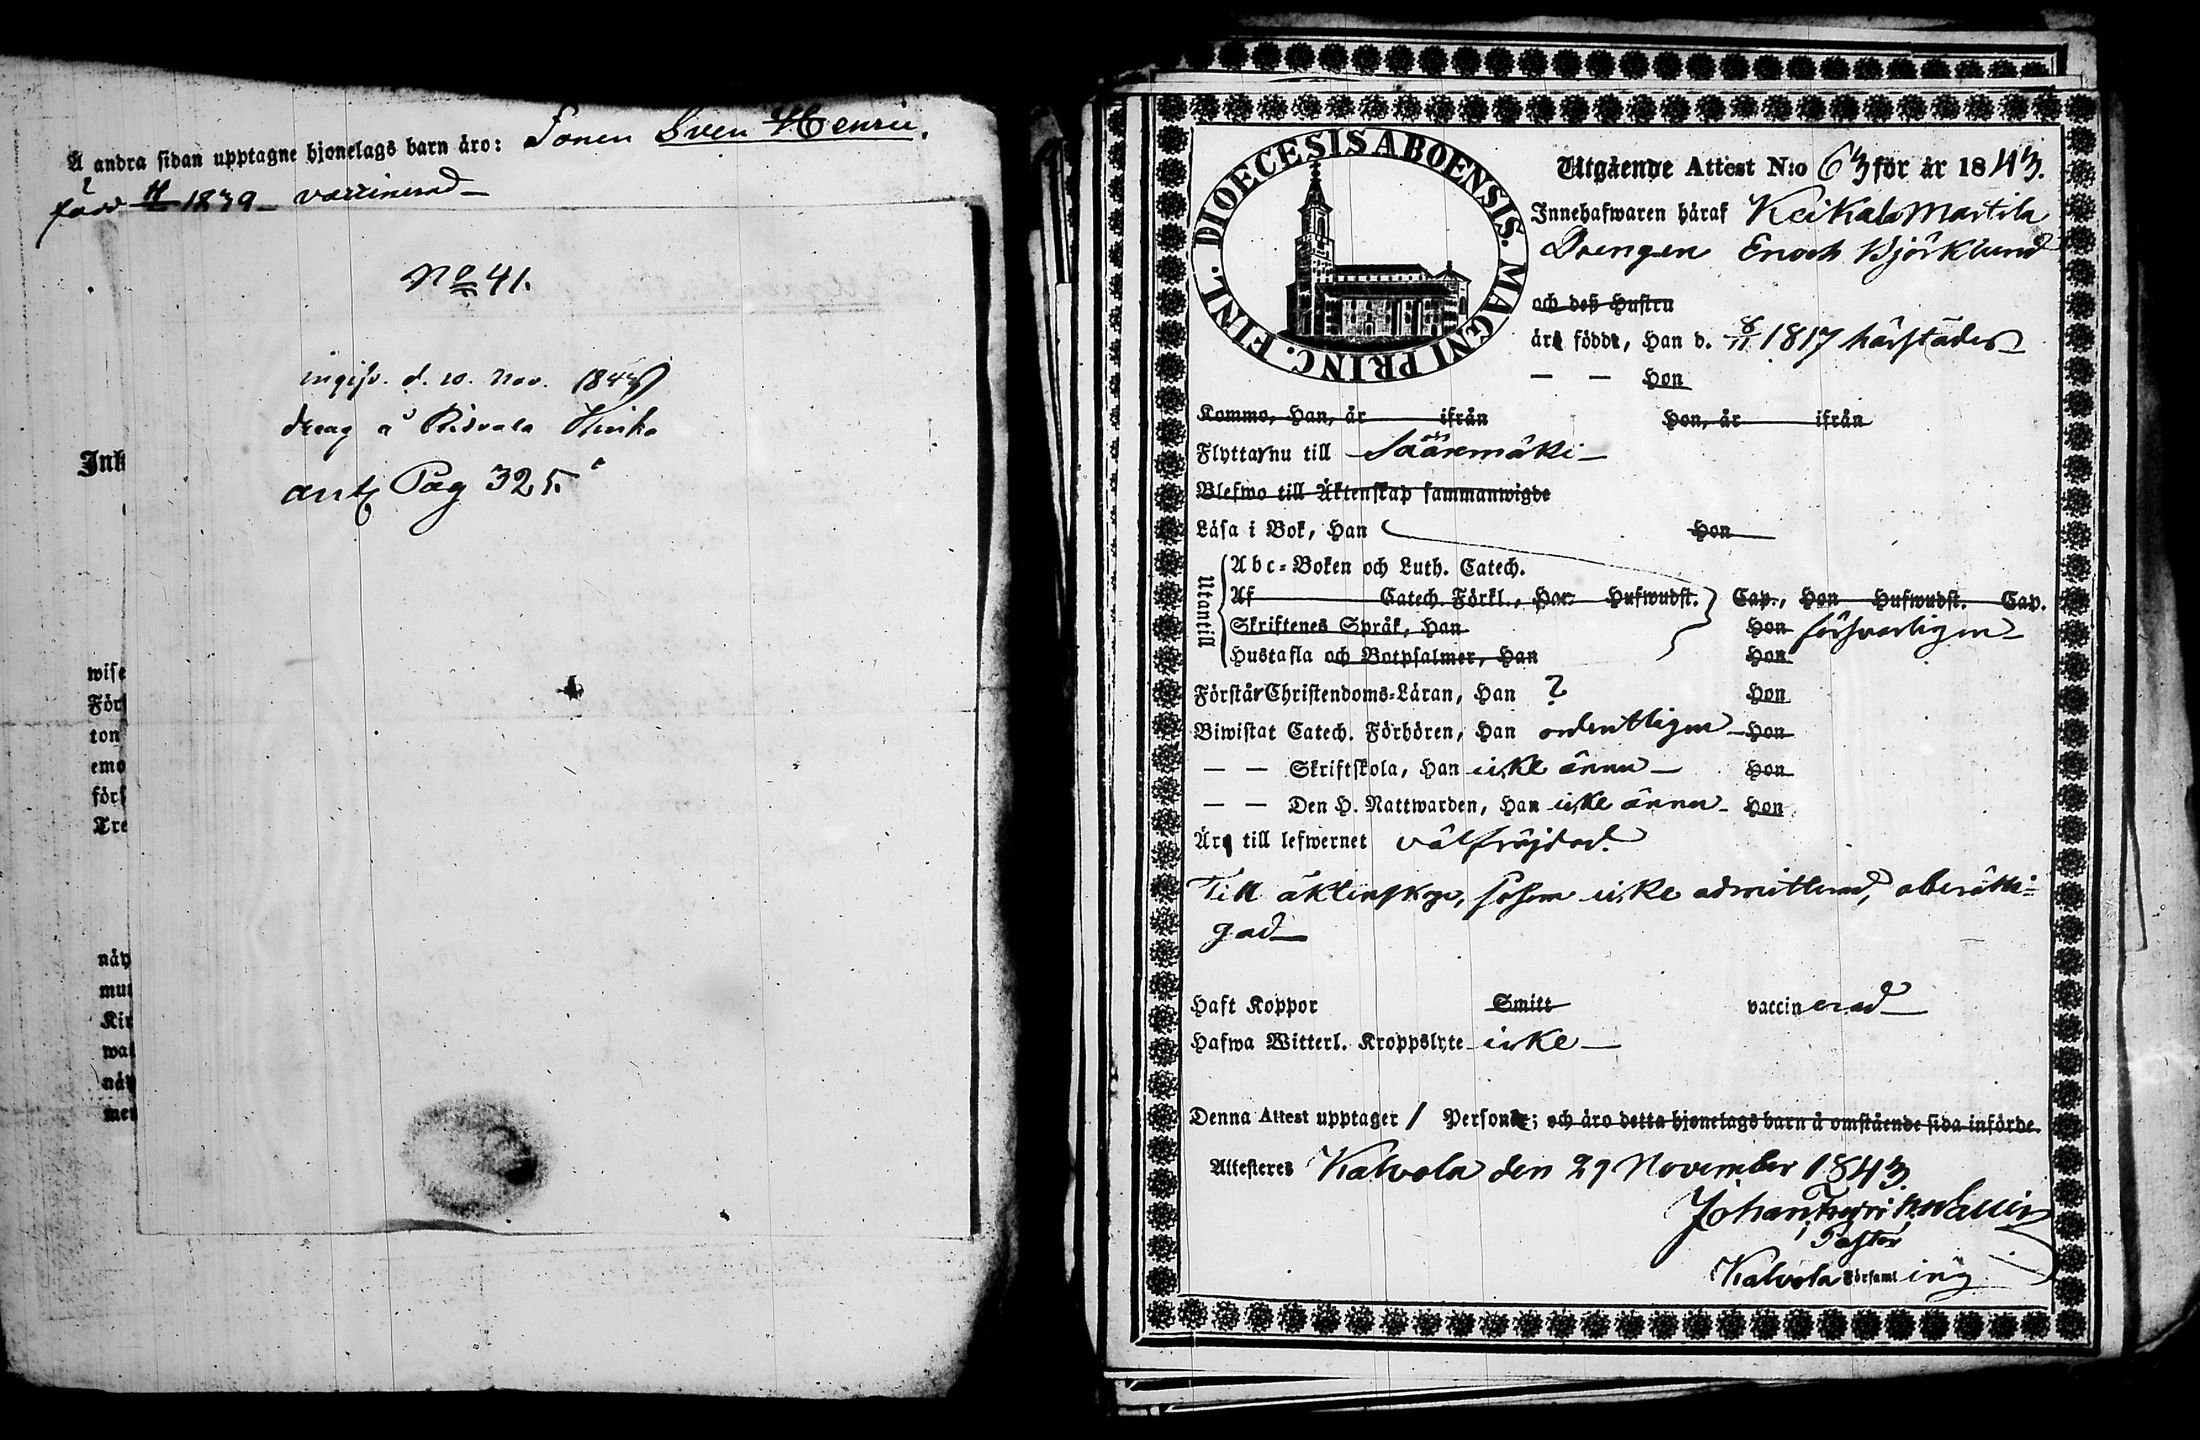 Å andra sidan upptagne hjonelags barn äro: Sonen Sven Henric.
född 1839 vaccinerad
No 41.
drag å Ridvala Heiko
ant. Pag 325.
Ink
wise
För
ton
emo
förs
Tre
näp
mut
Kir
wat
näp
men
DIOECESIS ABOENSIS. MAGNI PRINC. FINL.
Utgående Attest N:o 63 för år 1843.
Innehafwaren häraf Keikala Martila
Drengen Enoch Björklund
och deß Hustru
äro födde, Han d. 8/11 1817 härstädes
— — Hon
Kommo, Han, år ifrån Hon, år ifrån
Flytta nu till Säärmäki
Blefwo till Äktenskap sammanwigde
Läsa i Bok, Han Hon
Utantill
Abc-Boken och Luth. Catech.
Af Catech. Förkl., Han Hufwudst. Cap., Hon Hufwudst. Cap.
Skriftenes Språk, Han Hon försvarligen
Hustafla och Botpsalmer, Han Hon
Förstår Christendoms-Läran, Han ? Hon
Biwistat Catech. Förhören, Han ordentligen Hon
— — Skriftskola, Han icke ännu Hon
— — Den H. Nattwarden, Han icke ännu Hon
Äro till lefwernet välfräjdad.
Till äktenskap, såsom icke admitterad, oberätti-
gad
Haft Koppor Smitt vaccinerad
Hafwa Witterl. Kroppslyte icke
Denna Attest upptager 1 Personer; och äro detta hjonelags barn å omstående sida införde.
Attesteras Kalvola den 29 November 1843.
Johan Fredrik Wallin
Pastor
Kalvola Församling